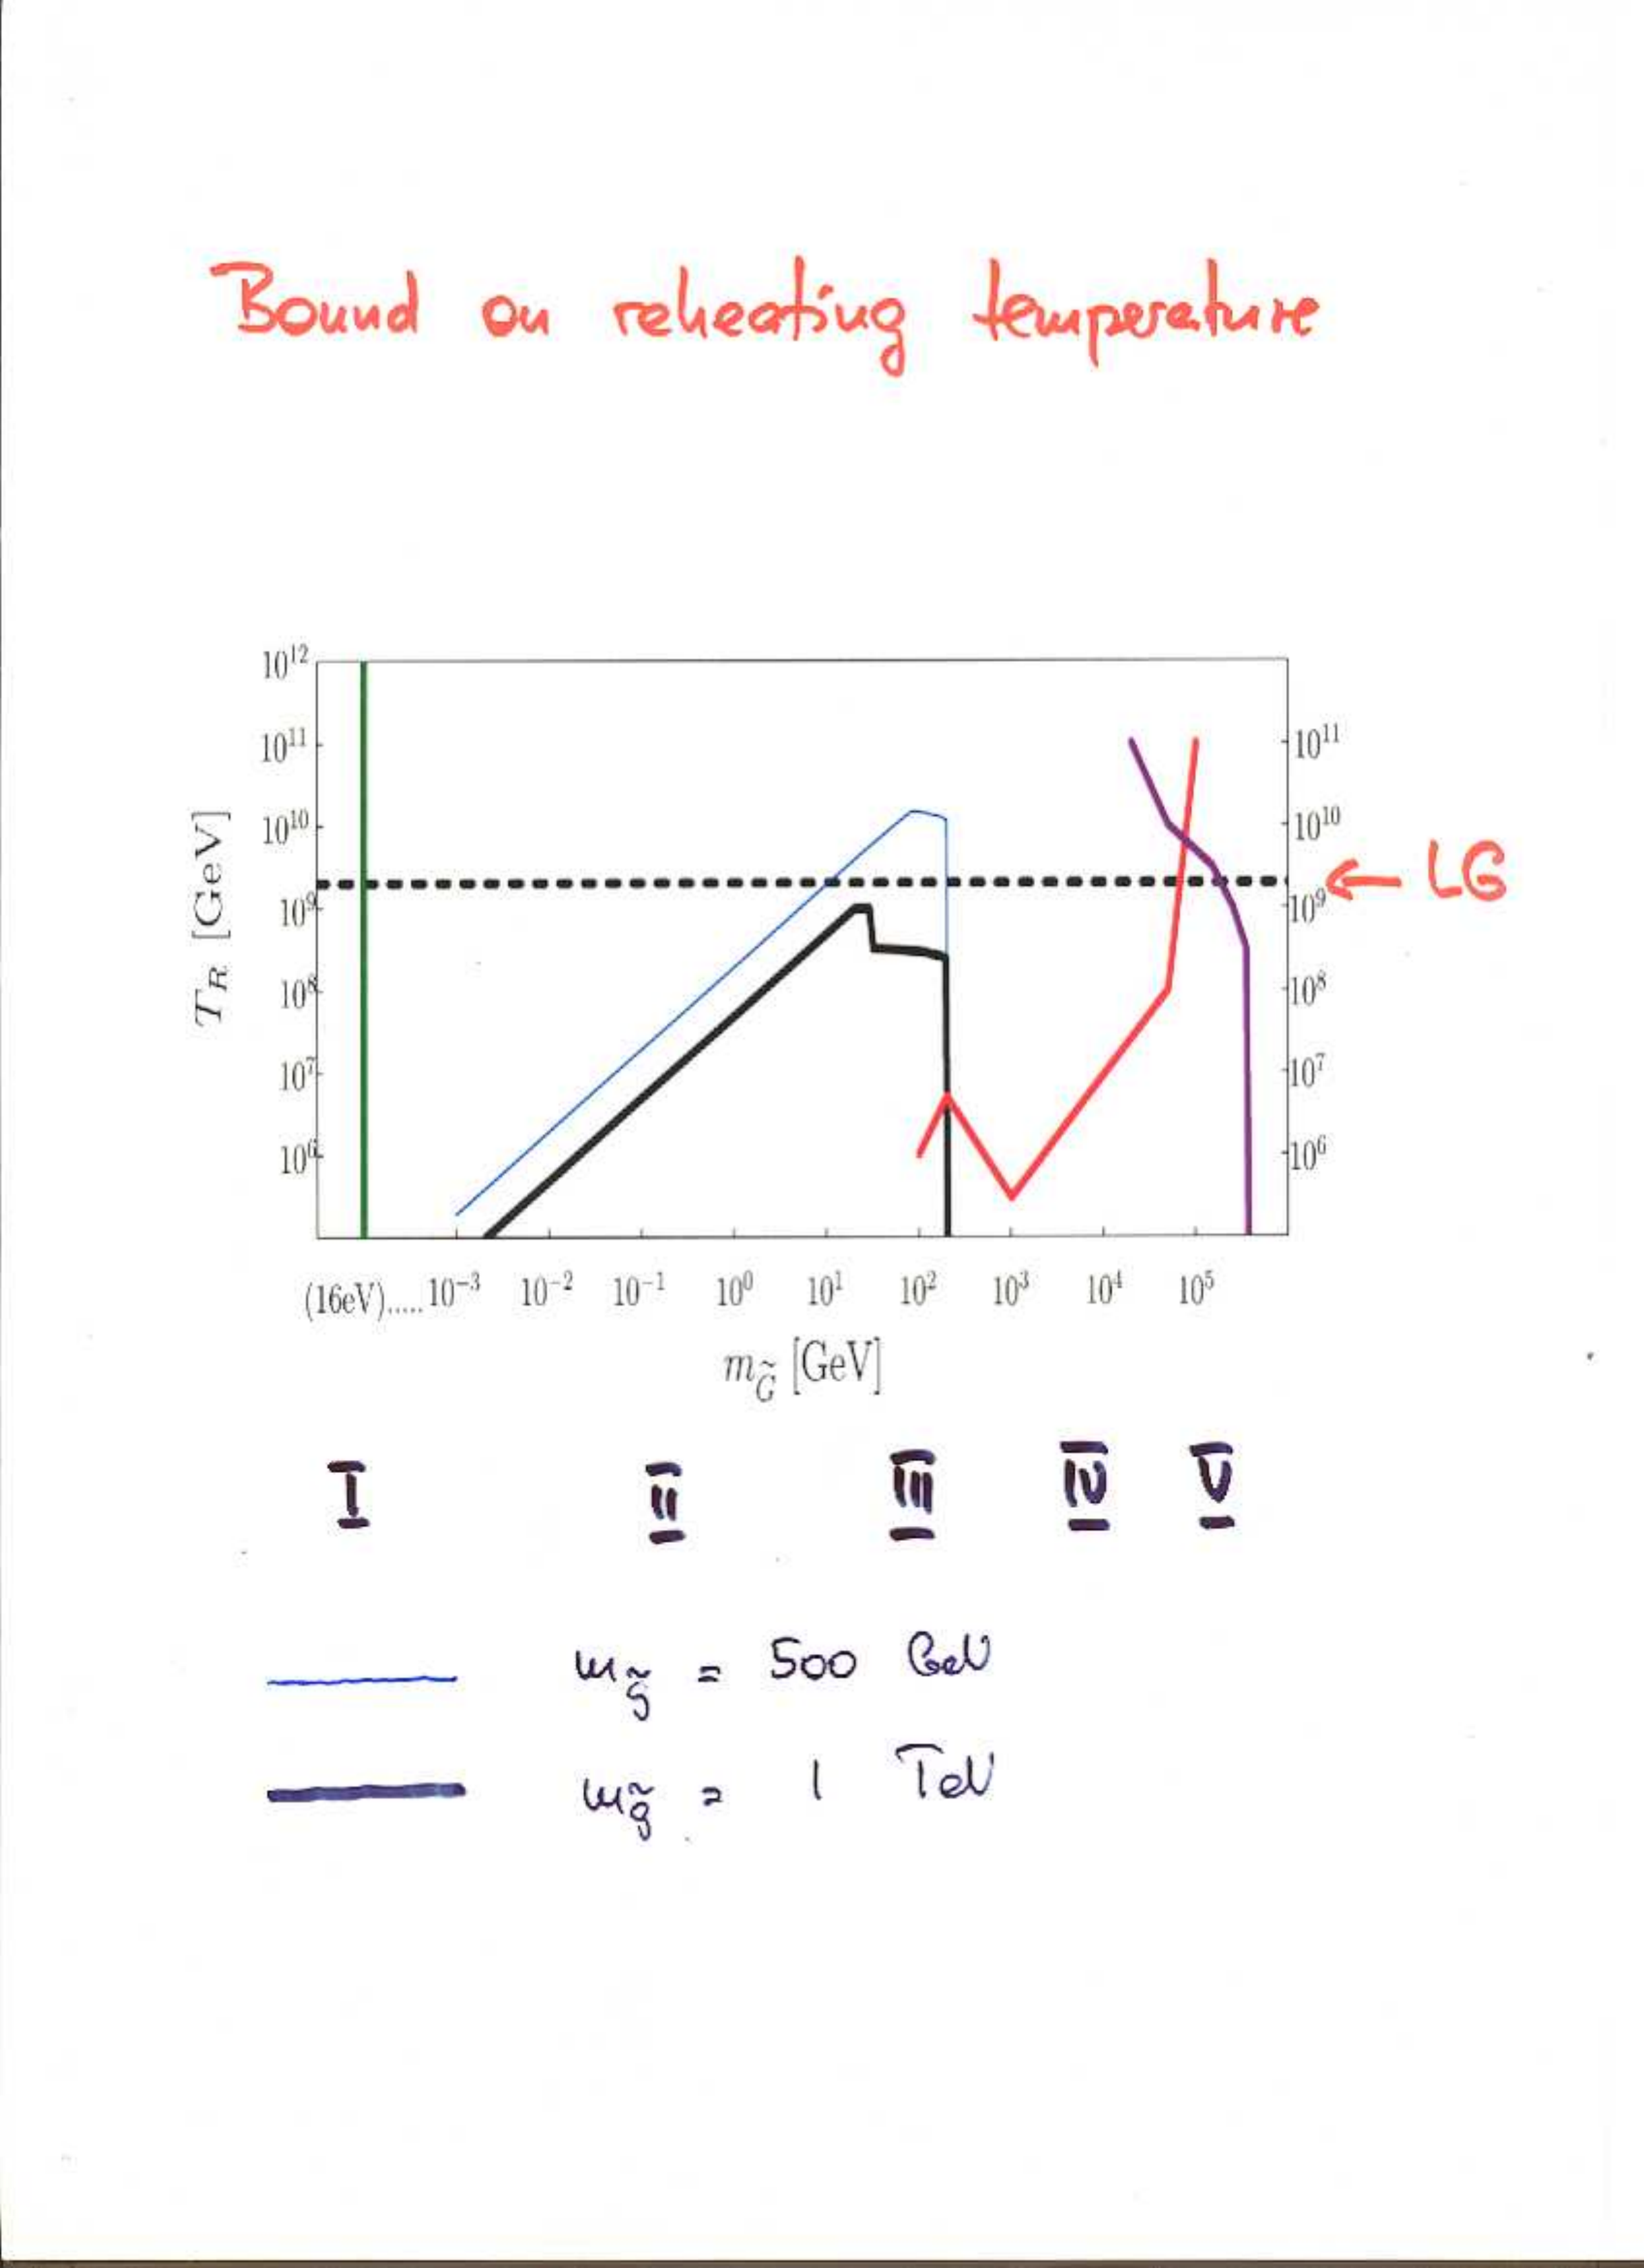 Bound on reheating temperature
10¹²
10¹¹ 10¹¹
10¹⁰ 10¹⁰
← LG
10⁹ 10⁹
T_R [GeV]
10⁸ 10⁸
10⁷ 10⁷
10⁶ 10⁶
(16eV)..... 10⁻³ 10⁻² 10⁻¹ 10⁰ 10¹ 10² 10³ 10⁴ 10⁵
m_G̃ [GeV]
I II III IV V
m_g̃ = 500 GeV
m_g̃ = 1 TeV